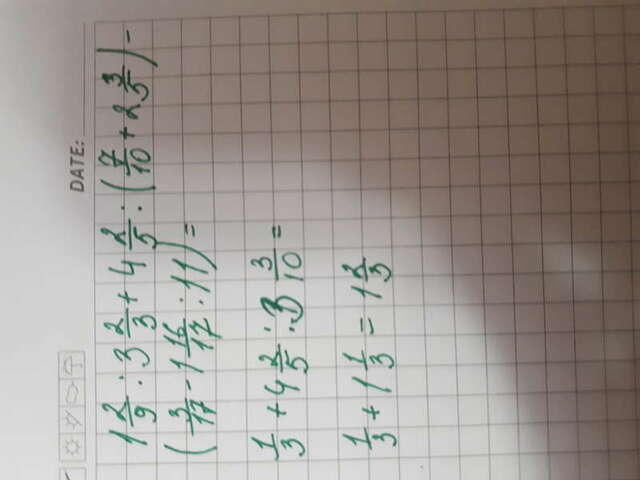 DATE:
1 2/9 : 3 2/3 + 4 2/5 : (7/10 + 2 3/5) -
(3/17 - 1 16/17 : 11) =
1/3 + 4 2/5 : 3 3/10 =
1/3 + 1 1/3 = 1 2/3